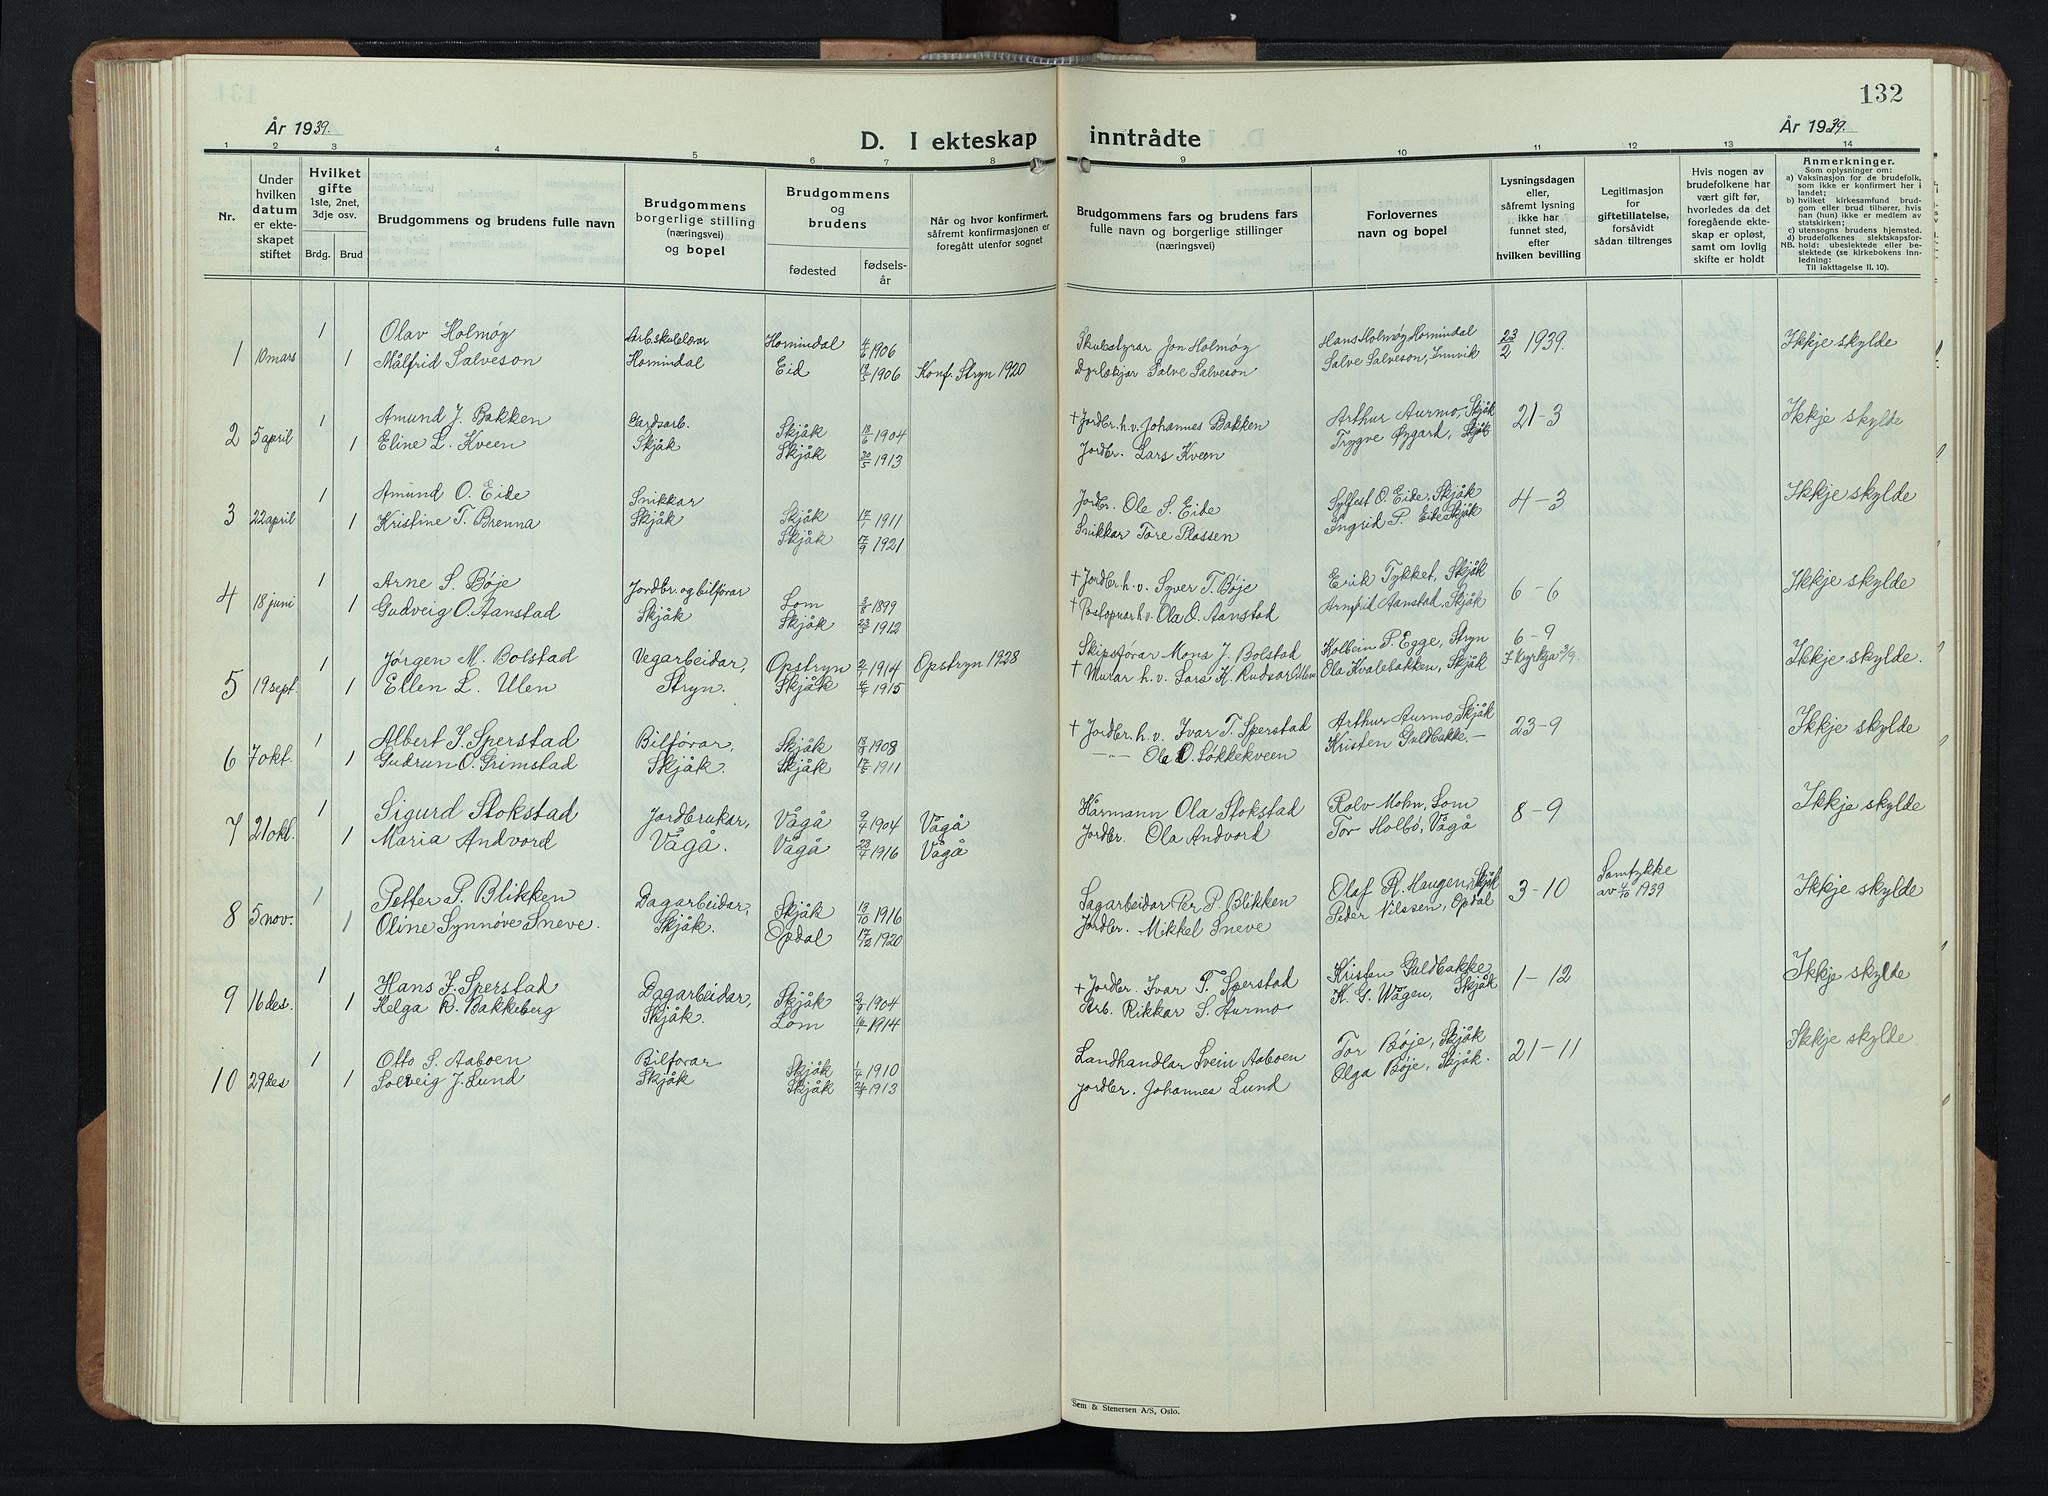 132
År 1939.
D. I ekteskap inntrådte
År 1939.
1 2 3 4 5 6 7 8 9 10 11 12 13 14
Nr.
Under hvilken datum er ekteskapet stiftet
Hvilket gifte 1ste, 2net, 3dje osv.
Brdg. Brud
Brudgommens og brudens fulle navn
Brudgommens borgerlige stilling (næringsvei) og bopel
Brudgommens og brudens
fødested
fødselsår
Når og hvor konfirmert, såfremt konfirmasjonen er foregått utenfor sognet
Brudgommens fars og brudens fars fulle navn og borgerlige stillinger (næringsvei)
Forlovernes navn og bopel
Lysningsdagen eller, såfremt lysning ikke har funnet sted, efter hvilken bevilling
Legitimasjon for giftetillatelse, forsåvidt sådan tiltrenges
Hvis nogen av brudefolkene har vært gift før, hvorledes da det foregående ekteskap er opløst, samt om lovlig skifte er holdt
Anmerkninger.
Som oplysninger om:
a) Vaksinasjon for de brudefolk, som ikke er konfirmert her i landet;
b) hvilket kirkesamfund brudgom eller brud tilhører, hvis han (hun) ikke er medlem av statskirken;
c) utensogns brudens hjemsted.
d) brudefolkenes slektskapsforhold: ubeslektede eller beslektede (se kirkebokens innledning:
NB.
Til iakttagelse II. 10).
1 10 mars 1 Olav Holmøy Arb.skulelærar Hornindal 4/6 1906 Skulestyrar Jon Holmøy Hans Holmøy Hornindal 23/2 1939. Ikkje skylde
1 Målfrid Salveson Hornindal Eid 19/5 1906 Konf. Stryn 1920 Dyrlækjar Salve Salveson Salve Salveson, Innvik
2 5 april 1 Amund J. Bakken Gardsarb. Skjåk 18/6 1904 + Jordbr. h.v. Johannes Bakken Arthur Aurmo, Skjåk 21-3 Ikkje skylde
1 Eline L. Kveen Skjåk Skjåk 30/5 1913 Jordbr. Lars Kveen Trygve Øygard, Skjåk
3 22 april 1 Amund O. Eide Snikkar Skjåk 17/1 1911 Jordbr. Ole S. Eide Sylfest O Eide, Skjåk 4-3 Ikkje skylde
1 Kristine T. Brenna Skjåk Skjåk 17/9 1921 Snikkar Tore Plassen Ingrid P. Eide Skjåk
4 18 juni 1 Arne S. Bøje Jordbr. og bilførar Lom 3/8 1899 + Jordbr. h.v. Syver T. Bøje Erik Tykket, Skjåk 6-6 Ikkje skylde
1 Gudveig O. Aanstad Skjåk Skjåk 23/5 1912 + Postopnar h.v. Ola O. Aanstad Arnfrid Aanstad, Skjåk
5 19 sept. 1 Jørgen M. Bolstad Vegarbeidar, Opstryn 2/7 1914 Opstryn 1928 Skipsførar Mons J. Bolstad Kolbein P. Egge, Stryn 6-9 Ikkje skylde.
1 Ellen L. Ulen Stryn. Skjåk 4/4 1915 + Murar h.v. Lars K. Rudsar Ulen Ola Kvalebakken, Skjåk I kyrkja 3/9.
6 7 okt. 1 Albert I. Sperstad Bilførar, Skjåk 13/9 1908 + Jordbr. h.v. Ivar T. Sperstad Arthur Aurmo, Skjåk 23-9 Ikkje skylde
1 Gudrun O. Grimstad Skjåk. Skjåk 17/5 1911 —"— Ole O. Løkkekveen Kristen Guldbakke. —
7 21 okt. 1 Sigurd Stokstad Jordbrukar, Vågå 9/4 1904 Vågå Kårmann Ola Stokstad Rolv Mohn, Lom 8-9 Ikkje skylde
1 Maria Andvord Vågå. Vågå 23/4 1916 Vågå Jordbr. Ola Andvord Tor Holbö, Vågå
8 5 nov. 1 Petter P. Blikken Dagarbeidar, Skjåk 13/10 1916 Sagarbeidar Per P. Blikken Olaf R. Haugen, Skjåk 3-10 Samtykke av 4/10 1939 Ikkje skylde
1 Oline Synnøve Sneve. Skjåk. Opdal 17/2 1920 Jordbr. Mikkel Sneve Peder Nilssen, Opdal
9 16 des. 1 Hans I. Sperstad Dagarbeidar, Skjåk 2/9 1904 + Jordbr. Ivar T. Sperstad Kristen Guldbakke 1-12 Ikkje skylde
1 Helga R. Bakkeberg Skjåk. Lom 16/1 1914 Arb. Rikkar S. Aurmo K. G. Wågen, Skjåk
10 29 des 1 Otto S. Aaboen Bilførar Skjåk 1/4 1910 Landhandlar Svein Aaboen Tor Bøje, Skjåk 21-11 Ikkje skylde
1 Solveig J. Lund Skjåk Skjåk 24/9 1913 Jordbr. Johannes Lund Olga Bøje, Skjåk.
Sem & Stenersen A/S, Oslo.